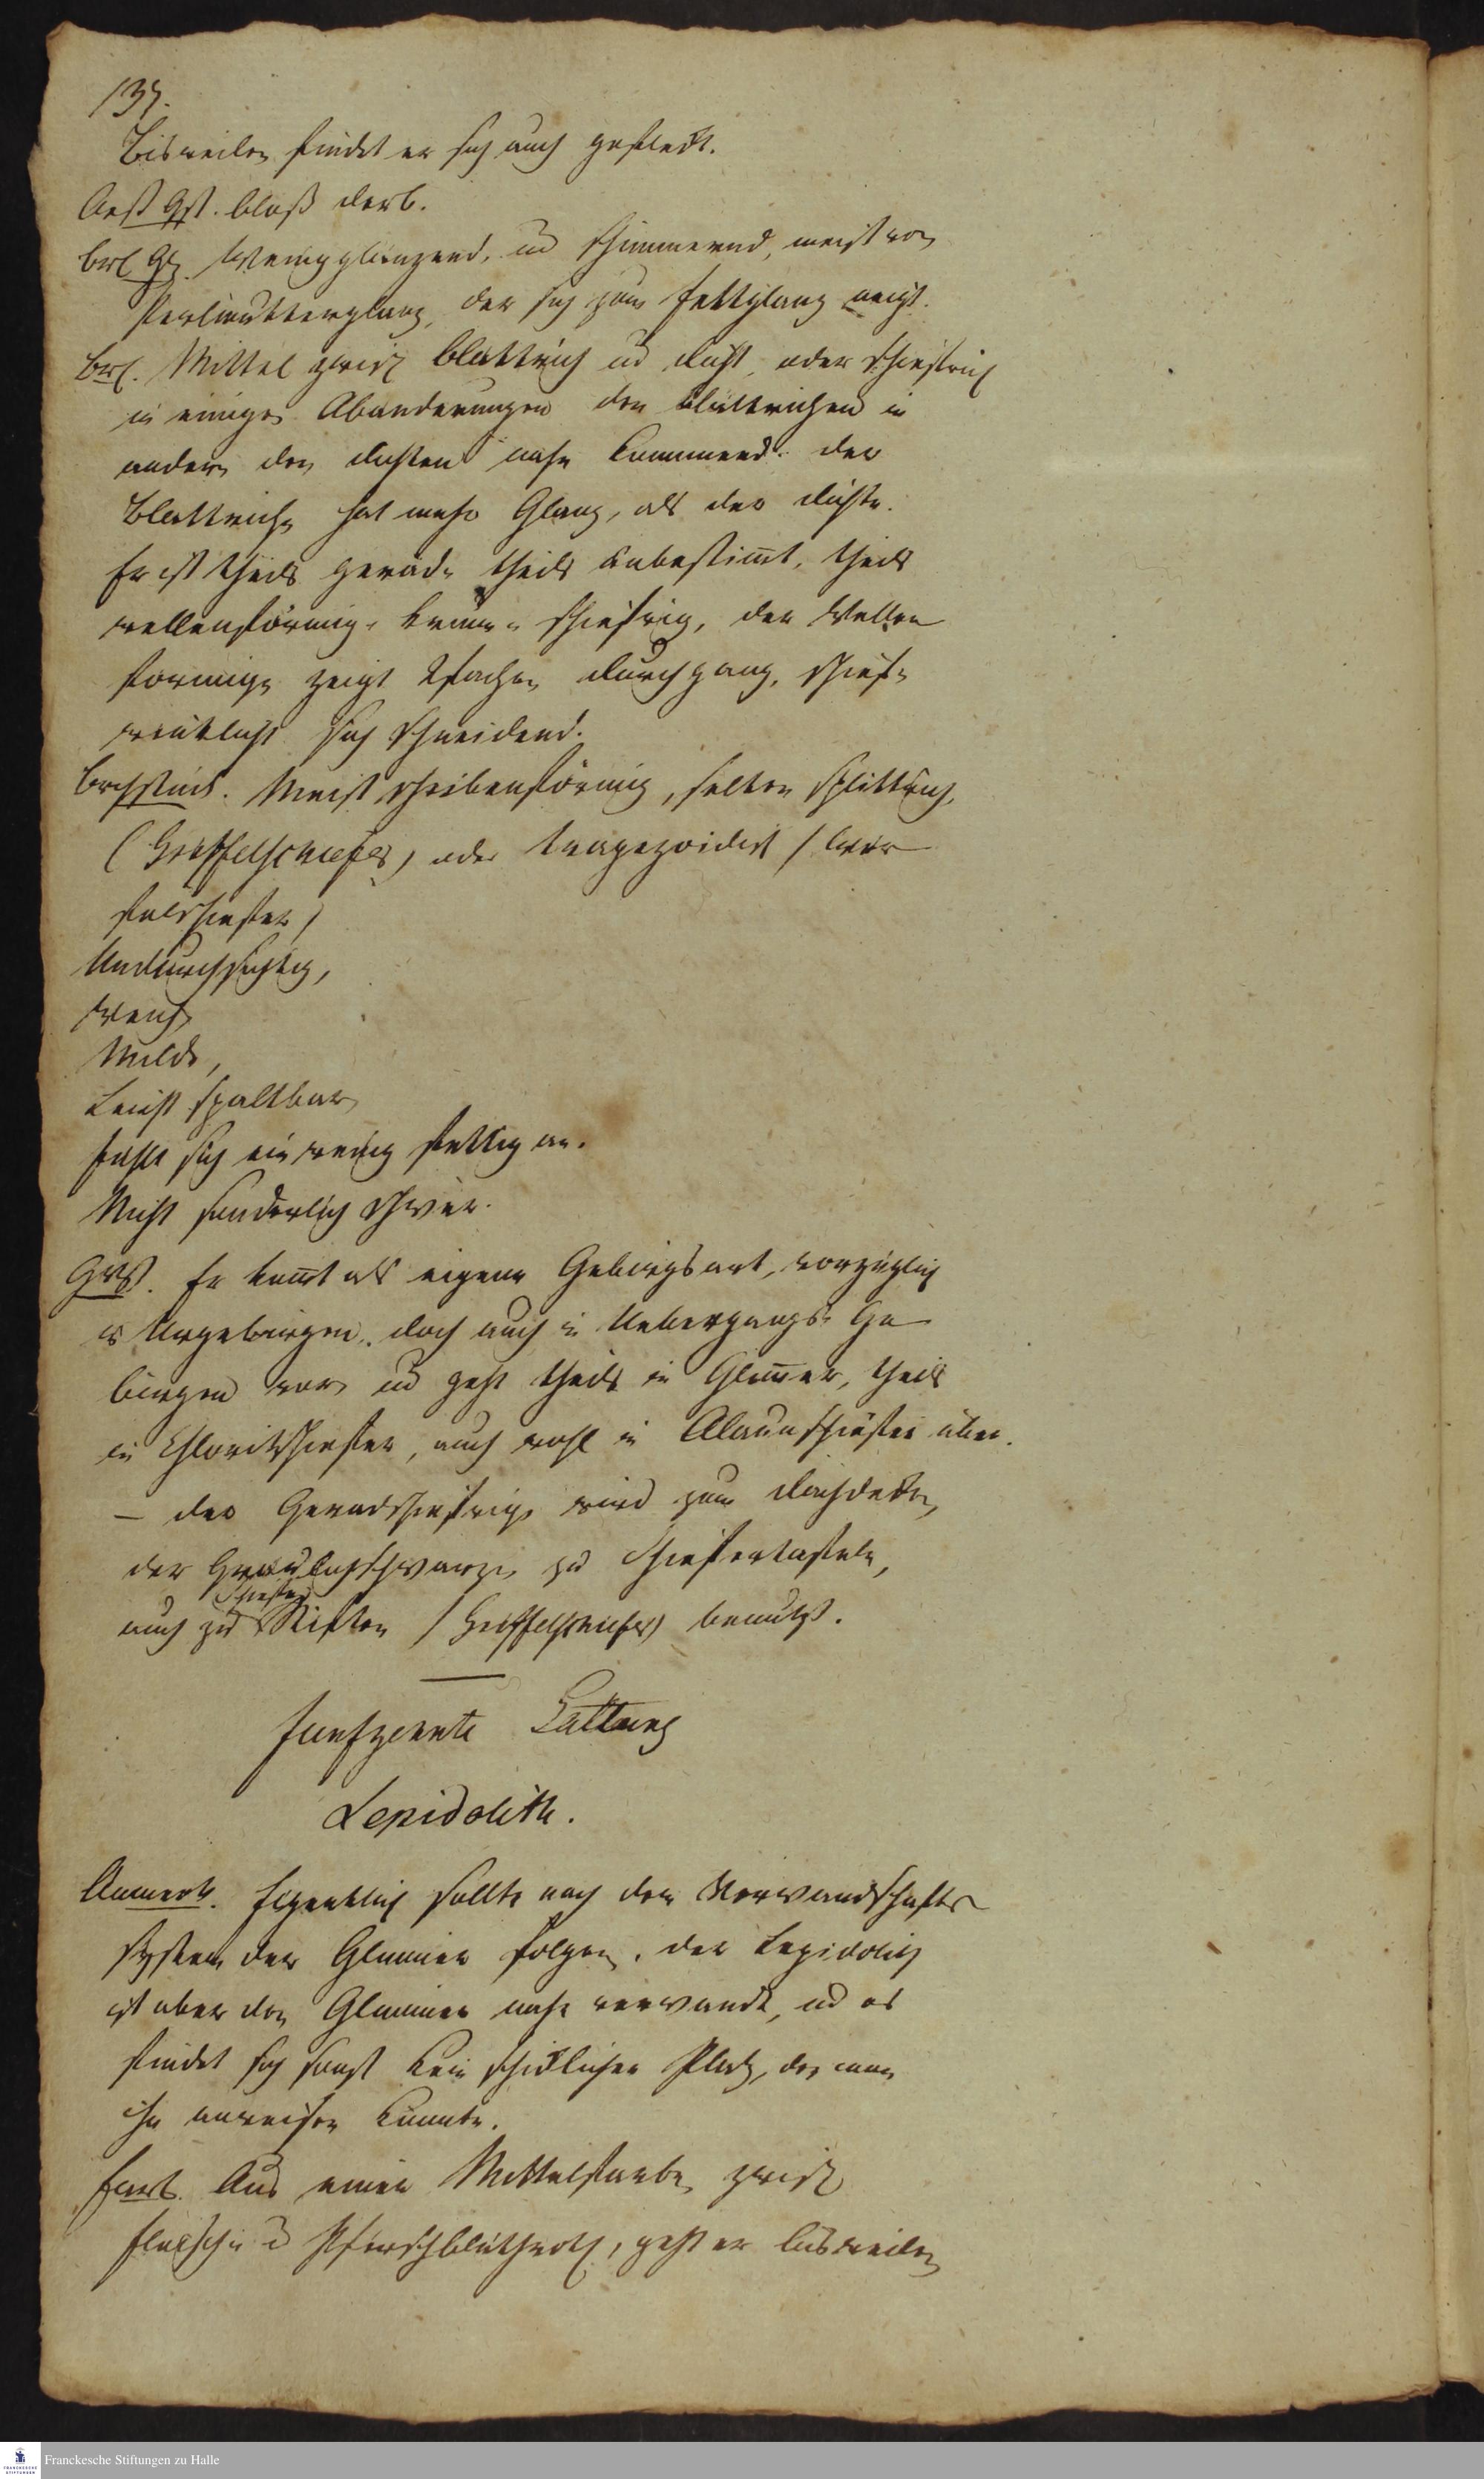 137.
Bisweilen findet er sich auch gefleckt.
Aeß Gst. bloß derb.
brl Gl. Wenig glänzend, ud schimmernd, meist von
Perlmutterglanz, der sich zum Fettglanz neigt.
brl. Mittel zwisch blättrich ud dicht, oder schiefrich
in einigen Abänderungen den blättrichen in
andern den dichten nahe kommend. der
blättriche hat mehr Glanz, als der dichte.
Er ist theils gerade theils unbestimt, theils
wellenförmig- krum- schiefrig, der Wellen
formige zeigt 2fachen Durchgang, schief-
winklicht sich schneidend.
brchstück. Meist scheibenförmig, selten splittrich,
(Griffelschiefer) oder trapezoidisch /
Undurchsichtig,
Weich
Milde,
Leicht spaltbar
Fühlt sich ein wenig fettig an.
Nicht sonderlich schwer.
Gbst. Er komt als eigene Gebirgsart, vorzüglich
in Urgebirgen, doch auch in Uebergangs- Ge
birgen vor, ud geht theils in Glimer, theils
in Chloritschiefer, auch wohl in Alaunschiefer über.
– der Geradschiefrige wird zum Dachdecken,
der Graulichschwarze zu Schiefertafeln,
auch zu Schiefer Stiften /Griffelschiefer) benutzt.
Funfzehnte Gattung
Lepidolith.
Anmerk. Eigentlich sollte nach dem Verwandschafts
system der Glimmer folgen, der Lepidolith
ist aber den Glimmer nahe verwandt, ud es
findet sich sonst kein schicklicher Platz, den man
ihn anweisen konnte.
Farb. Aus einer Mittelfarbe zwisch
fleisch- u Pfirschblüthroth, geht er bisweilen
Franckesche Stiftungen zu Halle